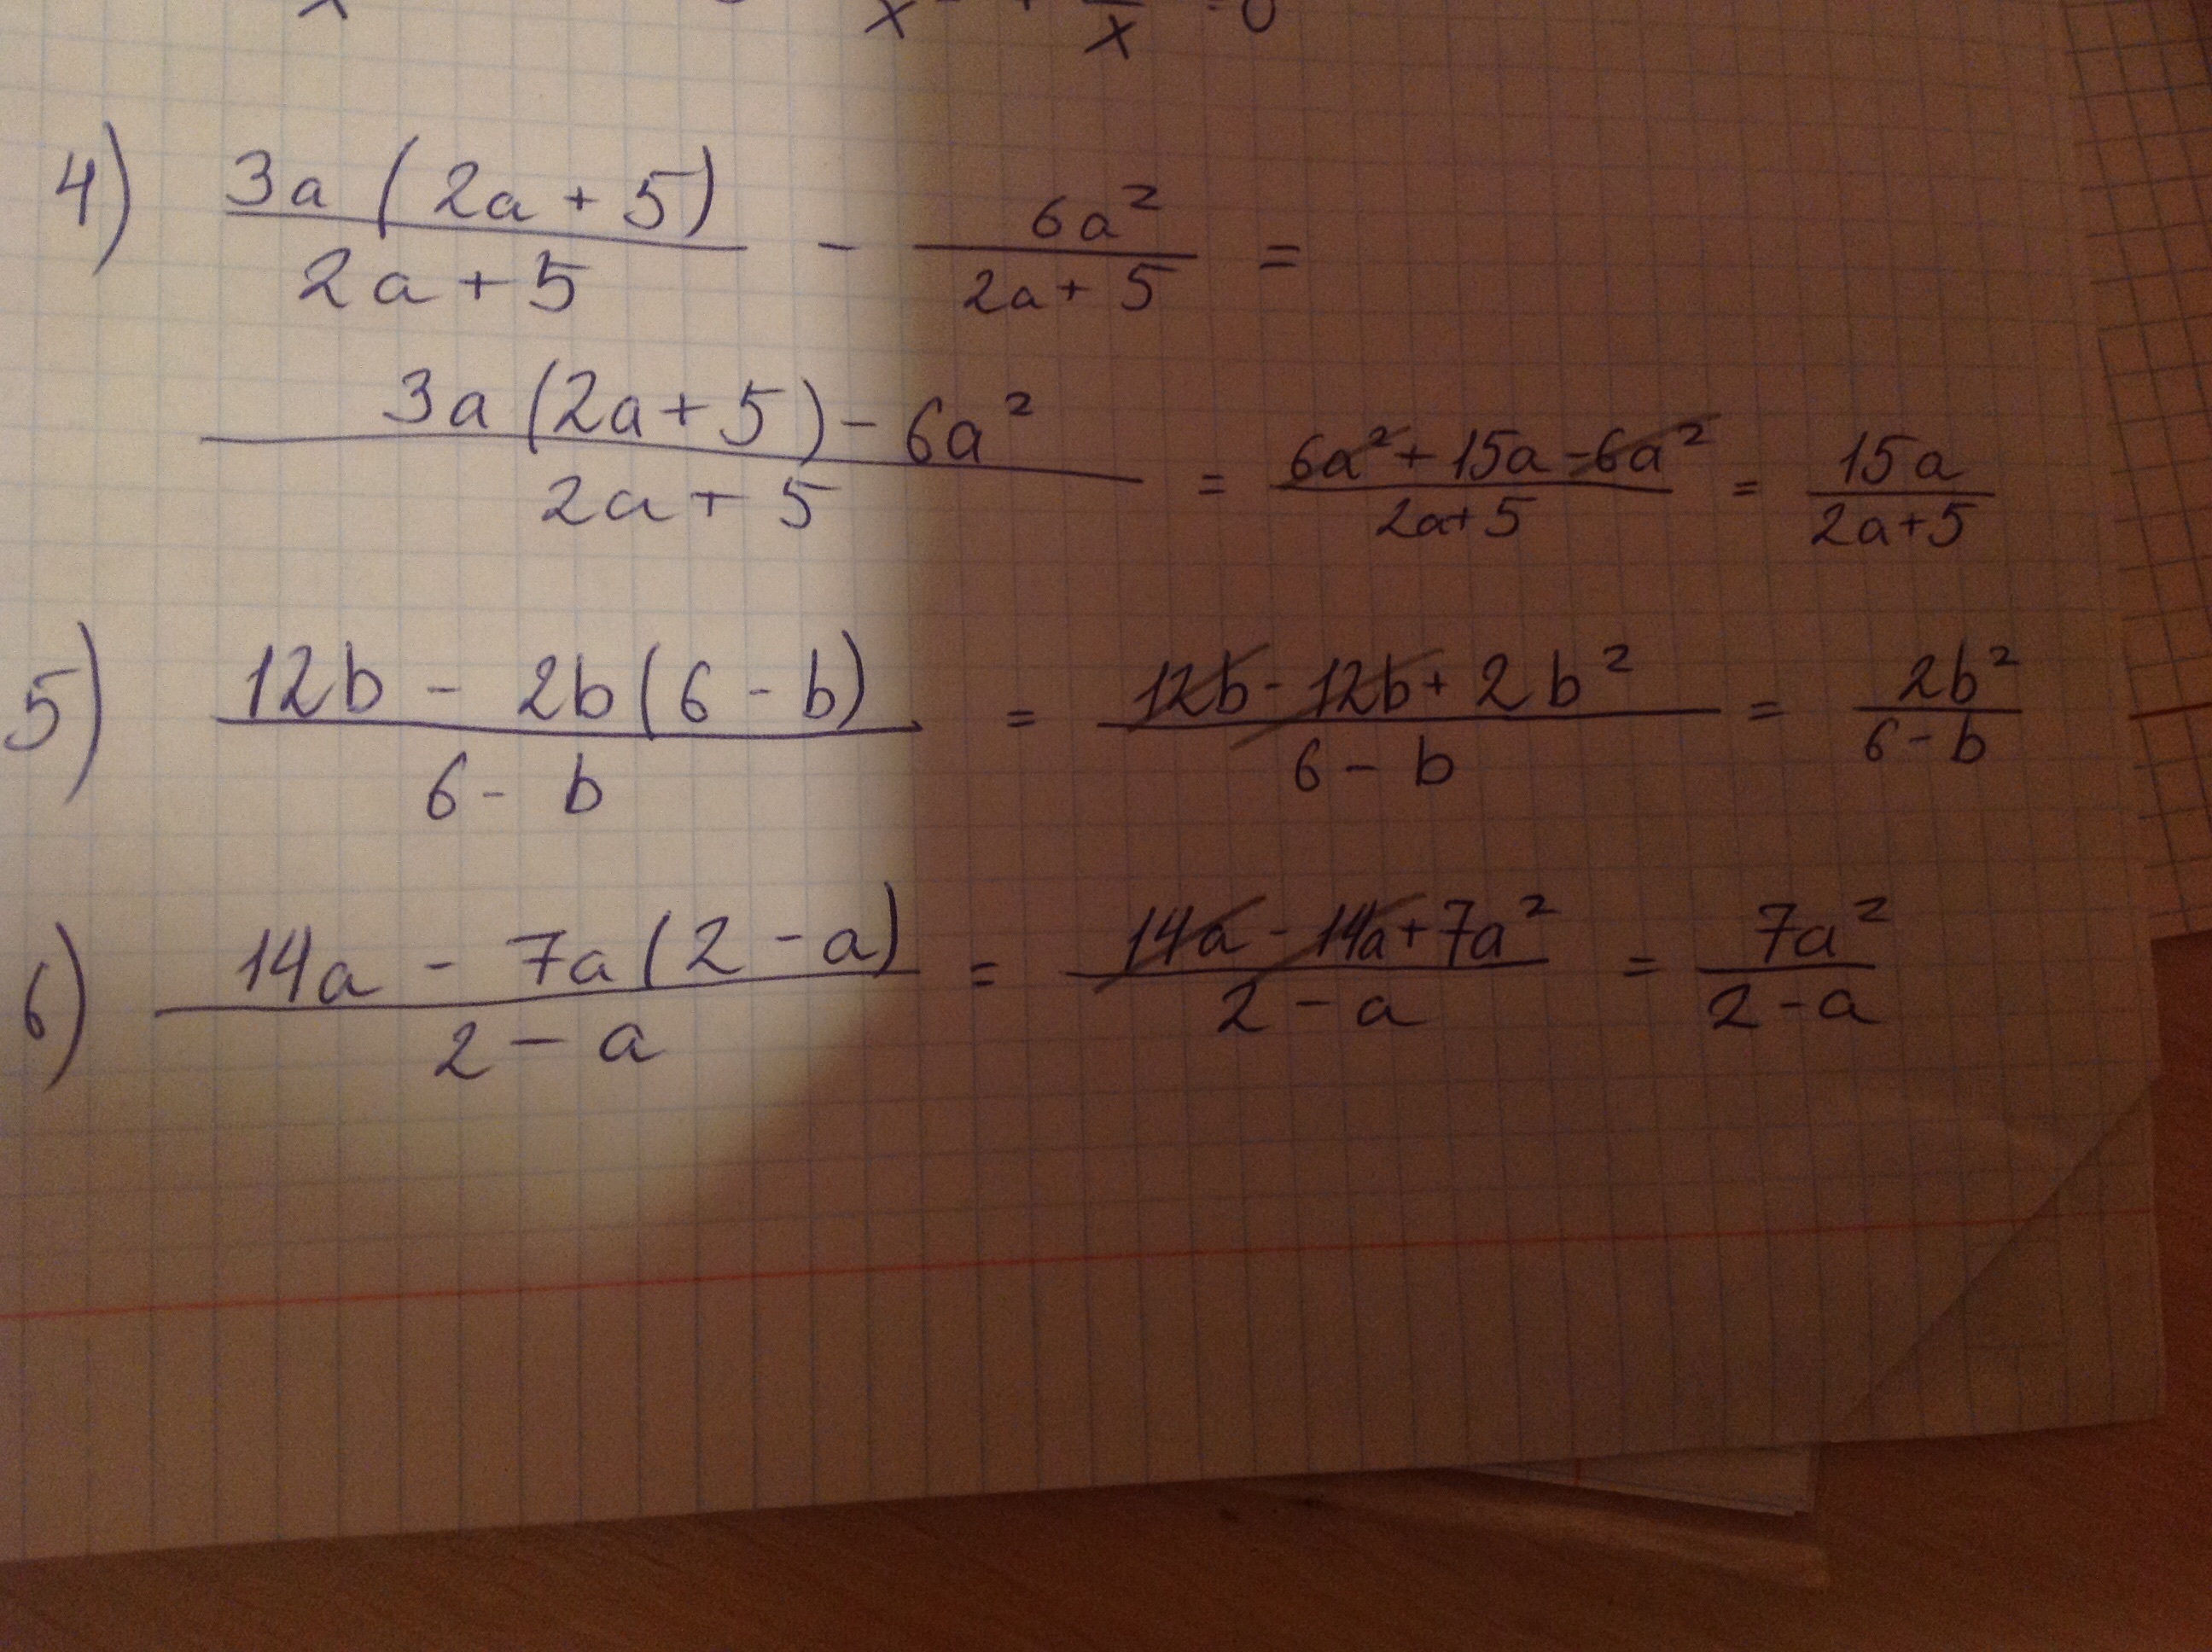 4) \frac{3a(2a+5)}{2a+5} - \frac{6a^2}{2a+5} =
\frac{3a(2a+5)-6a^2}{2a+5} = \frac{6a^2+15a-6a^2}{2a+5} = \frac{15a}{2a+5}
5) \frac{12b - 2b(6-b)}{6-b} = \frac{12b-12b+2b^2}{6-b} = \frac{2b^2}{6-b}
6) \frac{14a - 7a(2-a)}{2-a} = \frac{14a-14a+7a^2}{2-a} = \frac{7a^2}{2-a}